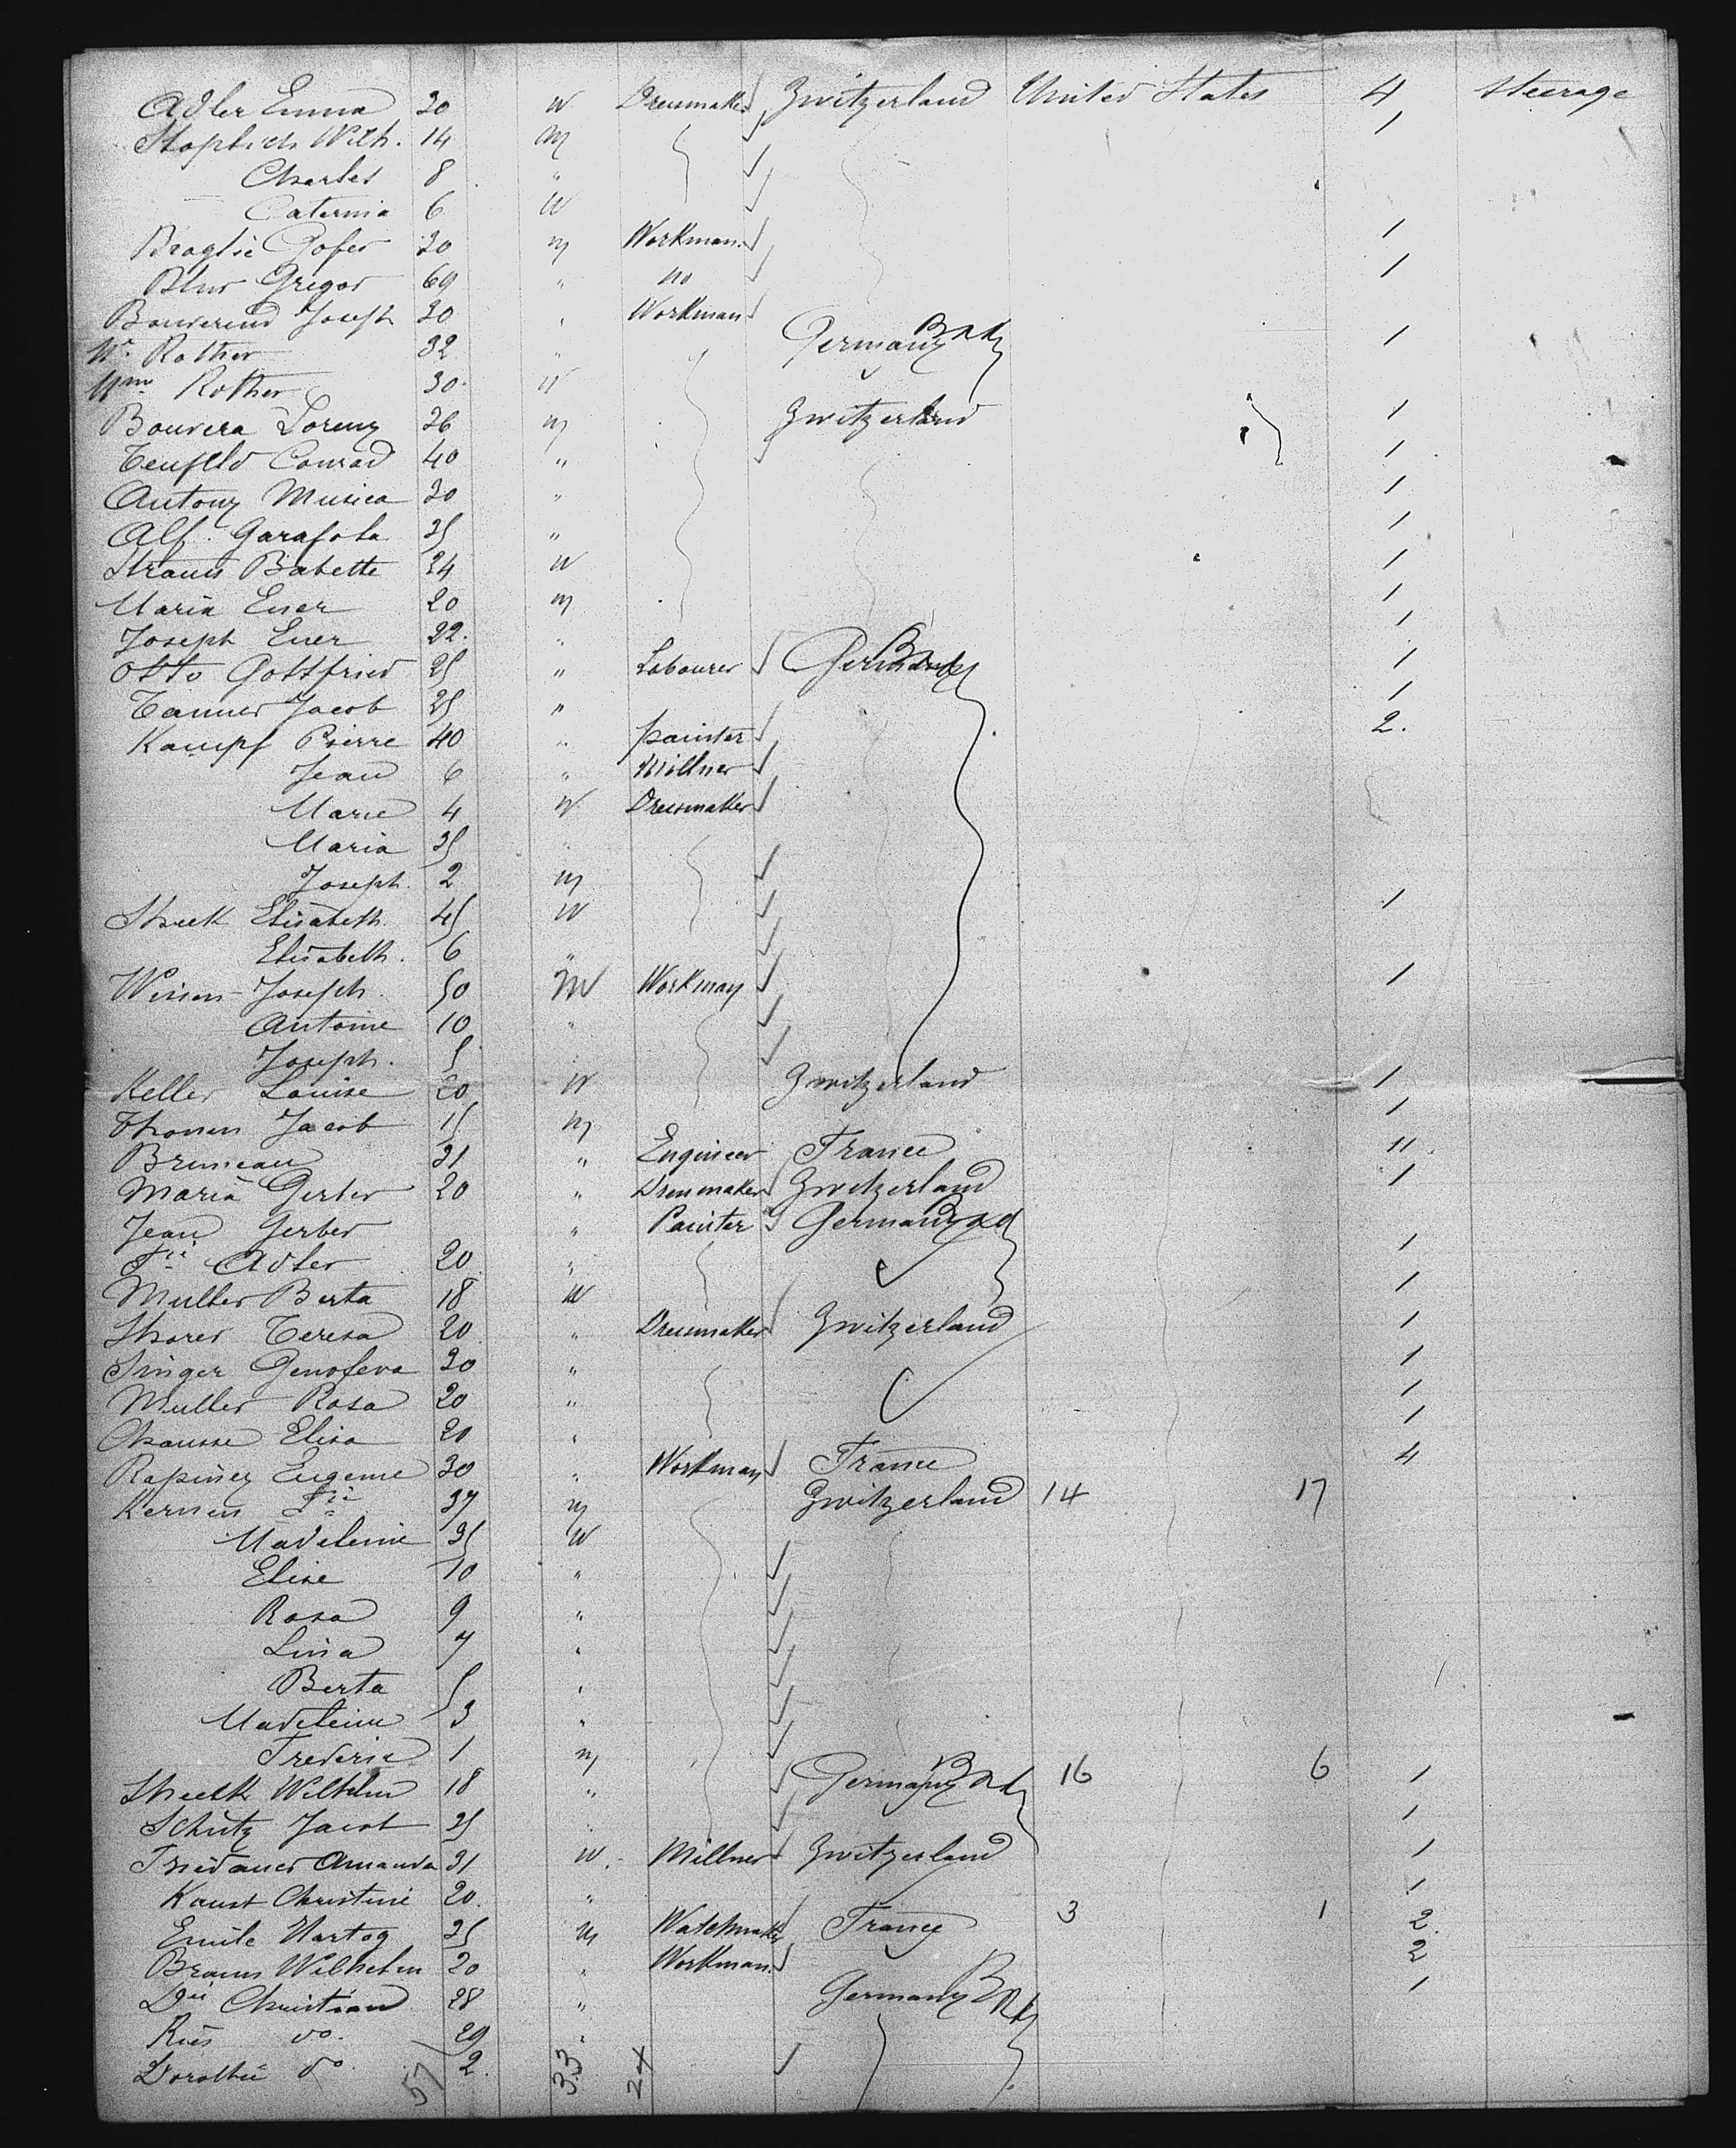 Adler Emma 20 W Dressmaker Zwitzerland United States 4 Steerage
With. 14 M 1
Charles 8 "
Caterina 6 W
Gofer 30 m Workman 1
Gregor 69 " no 1
Joseph 30 " Workman
Mr. Rother 32 " Germany 1
Mme Rother 30 W
Bouvera Lorenz 26 m Zwitzerland 1
Teufeld Conrad 40 " 1
Antony Musica 30 " 1
Alf. Garafola 35 " 1
Straus Babette 24 W 1
Maria Ener 20 m 1
Joseph Ener 22 " 1
Otto Gottfried 25 " Labourer Germany 1
Tanner Jacob 25 " 1
Kampf Pierre 40 " painter 2.
Jean 6 " Millner
Marie 4 W Dressmaker
Maria 35 "
Joseph 2 m
Elisabeth 45 W 1
Elisabeth. 6 "
Joseph 50 M Workman 1
Antoine 10 "
Joseph. 5 "
Keller Louise 20 W Zwitzerland 1
Thonen Jacob 15 m 1
Bruneau 31 " Engineer France 11
Maria Gerber 20 " Dressmaker Zwitzerland 1
Jean Gerber " Painter Germany
Adler 20 " 1
Muller Berta 18 W 1
Teresa 20 " Dressmaker Zwitzerland 1
Singer Genofeva 20 " 1
Muller Rosa 20 " 1
Chausse Elisa 20 " 1
Eugenie 30 " Workman France 4
Kernen 37 m Zwitzerland 14 17
Madeleine 35 W
Elise 10 "
Rosa 9 "
Lina 7 "
Berta 5 "
Madeleine 3 "
Frederic 1 m
Wilhelm 18 " Germany 16 6 1
Schutz Jacob 25 " 1
Friedauer Amanda 31 W. Millner Zwitzerland 1
Kaust Christine 20. " 1
Emile Hartog 35 m Watchmaker France 3 1 2
Braun Wilhelm 20 " Workman 2
Christian 28 " Germany 1
do. 29 "
do. 2
57 33 24